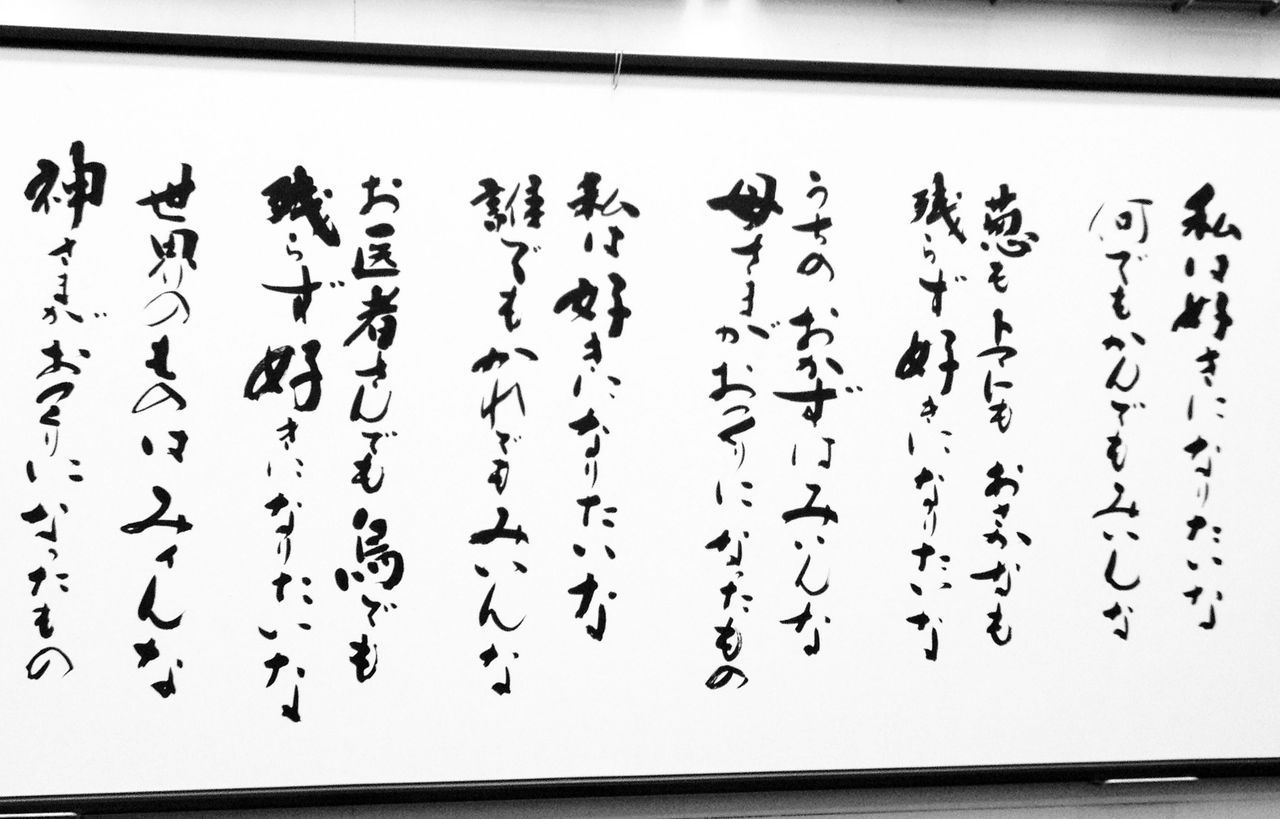 私は好きになりたいな
何でもかんでもみいんな
葱もトマトも おさかなも
残らず好きになりたいな
うちの おかずは みいんな
母さまがおつくりになったもの
私は好きになりたいな
誰でもかれでもみいんな
お医者さんでも烏でも
残らず好きになりたいな
世界のものはみィんな
神さまがおつくりになったもの